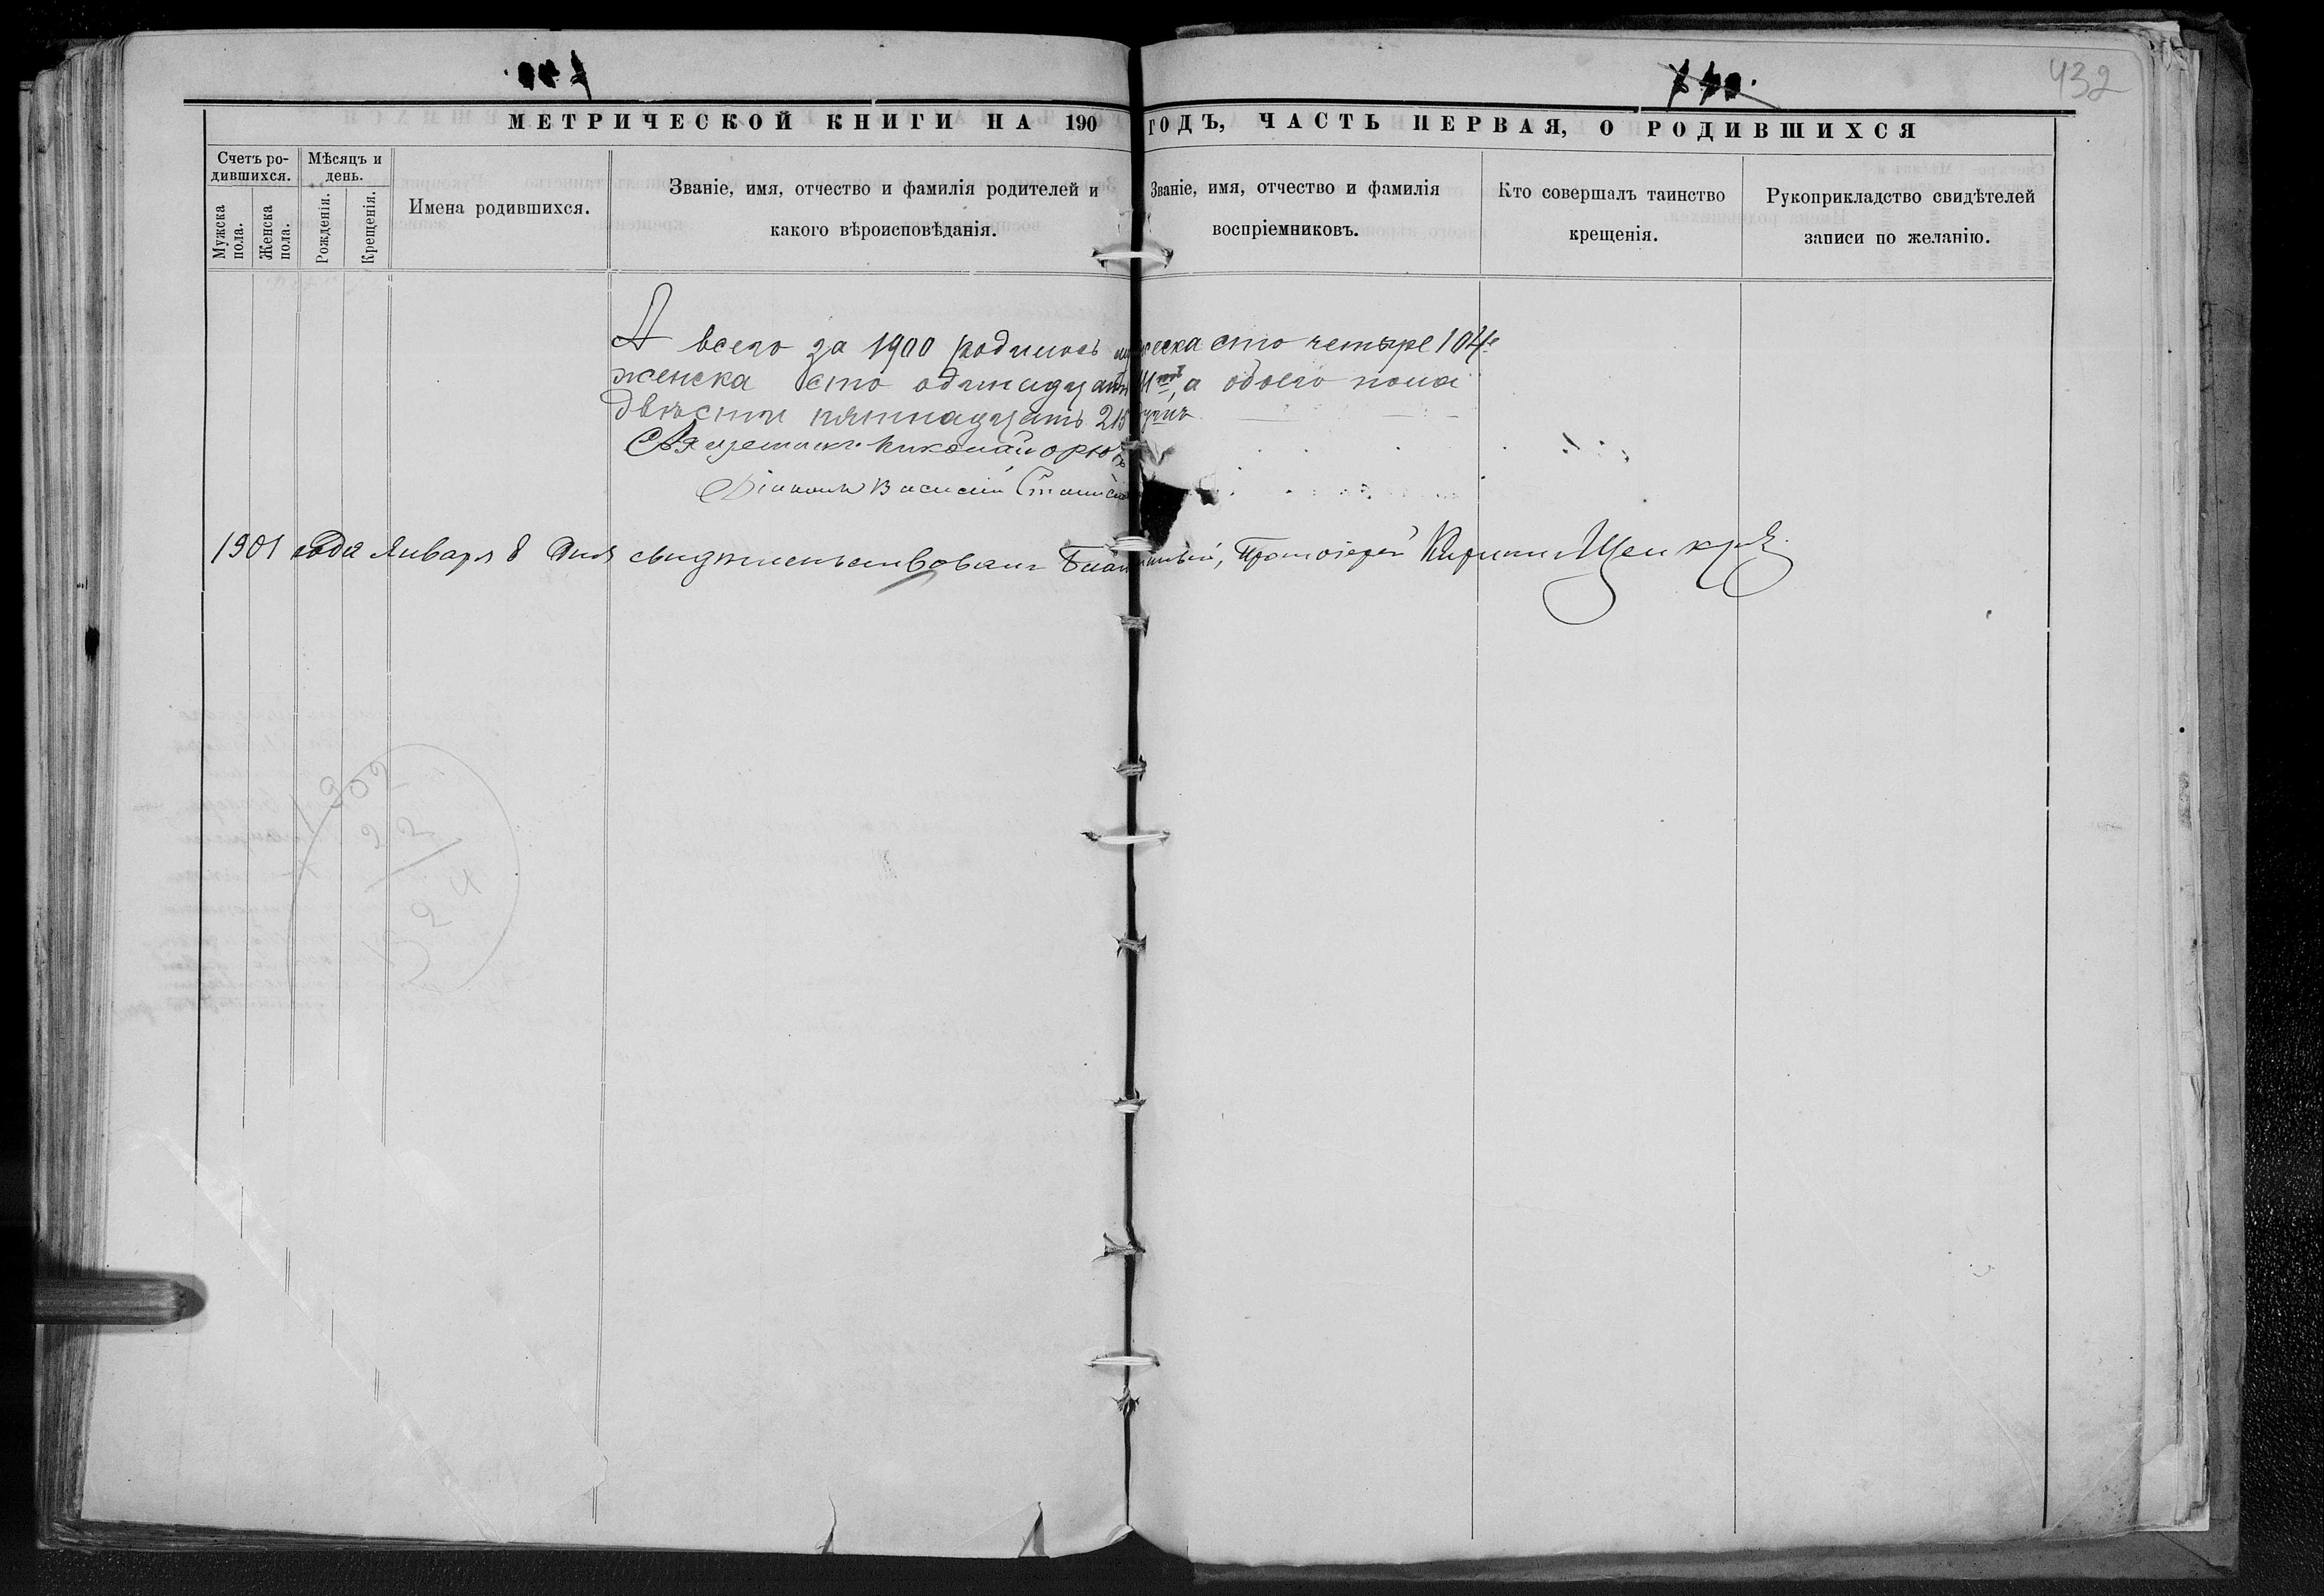 432
МЕТРИЧЕСКОЙ КНИГИ НА 190 ГОДЪ, ЧАСТЬ ПЕРВАЯ, О РОДИВШИХСЯ
Счетъ ро-
дившихся.
Мужска
пола.
Женска
пола.
Мѣсяцъ и
день.
Рожденія.
Крещенія.
Имена родившихся.
Званіе, имя, отчество и фамилія родителей и
какого вѣроисповѣданія.
Званіе, имя, отчество и фамилія
воспріемниковъ.
Кто совершалъ таинство
крещенія.
Рукоприкладство свидѣтелей
записи по желанію.
А всего за 1900 родилось мужеска сто четыре 104е
женска сто одинадцать 111ть, а обоего пола
двѣсти пятнадцать 215
Священникъ Николай
Діаконъ Василій
1901 года Января 8 дня свидѣтельствовалъ Благочинный, Протоіерей Кириллъ
1902
22
24